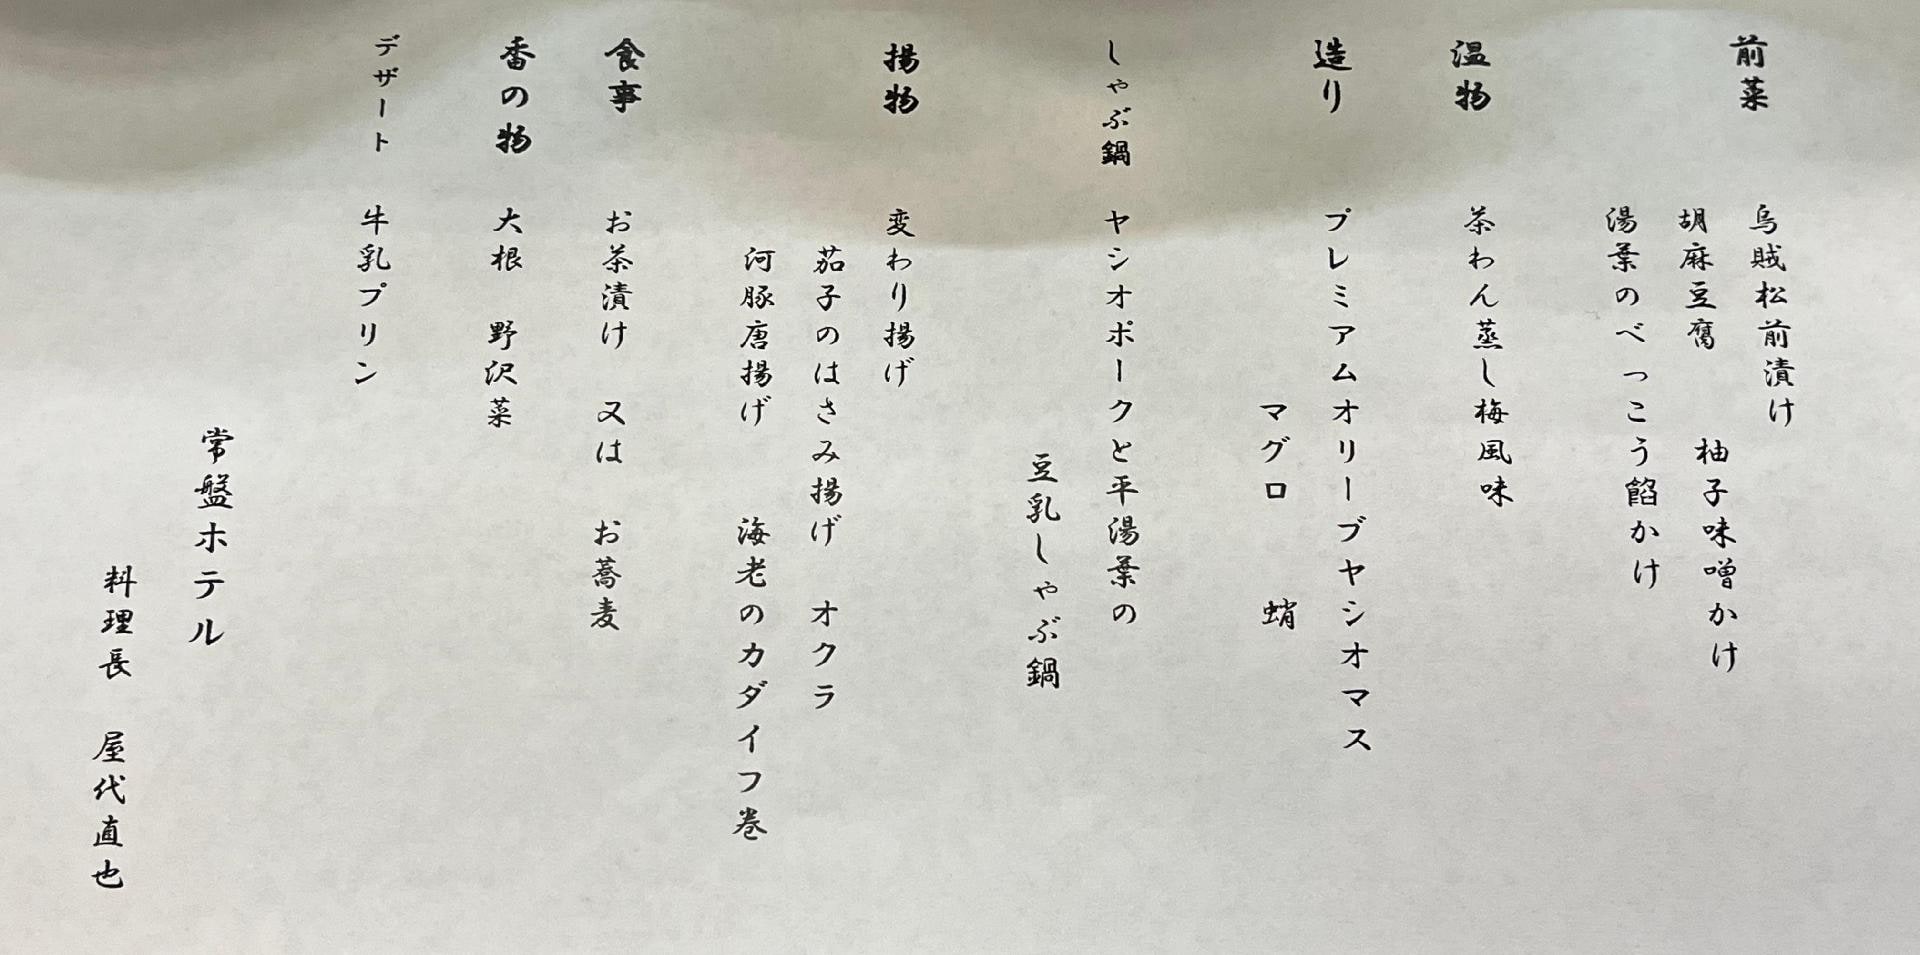 前菜 烏賊松前漬け
胡麻豆腐 柚子味噌かけ
湯葉のべっこう餡かけ
温物 茶わん蒸し梅風味
造り プレミアムオリーブヤシオマス
マグロ 蛸
しゃぶ鍋 ヤシオポークと平湯葉の
豆乳しゃぶ鍋
揚物 変わり揚げ
茄子のはさみ揚げ オクラ
河豚唐揚げ 海老のカダイフ巻
食事 お茶漬け 又は お蕎麦
香の物 大根 野沢菜
デザート 牛乳プリン
常盤ホテル
料理長 屋代直也